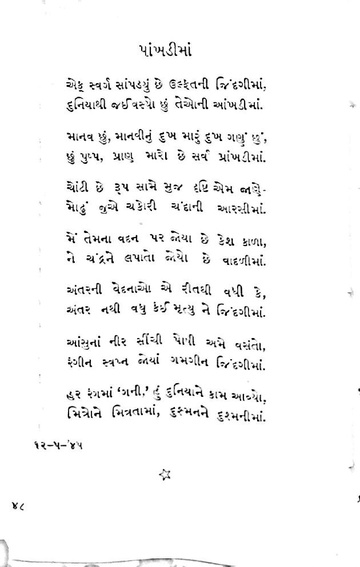 પાંખડીમાં
એક સ્વર્ગ સાંપડયું છે ઉલ્ફતની જિંદગીમાં,
દુનિયાથી જઈ વસ્યો છું તેઓની આંખડીમાં.
માનવ છું, માનવીનું દુખ મારું દુખ ગણું છું,
છું પુષ્પ, પ્રાણ મારો છે સર્વ પાંખડીમાં.
ચોંટી છે રૂપ સામે મુજ દૃષ્ટિ એમ જાણે-
મોઢું જુએ ચકોરી ચંદાની આરસીમાં.
મેં તેમના વદન પર જોયા છે કેશ કાળા,
ને ચંદ્રને લપાતો જોયો છે વાદળીમાં.
અંતરની વેદનાઓ એ રીતથી વધી કે,
અંતર નથી વધુ કંઈ મૃત્યુ ને જિંદગીમાં.
આંસુનાં નીર સીંચી પોષી અમે વસંતો,
રંગીન સ્વપ્ન જોયાં ગમગીન જિંદગીમાં.
હર રંગમાં ‘ગની,’ તું દુનિયાને કામ આવ્યો,
મિત્રોને મિત્રતામાં, દુશ્મનને દુશ્મનીમાં.
૧૨-૫-’૪૫
૪૮